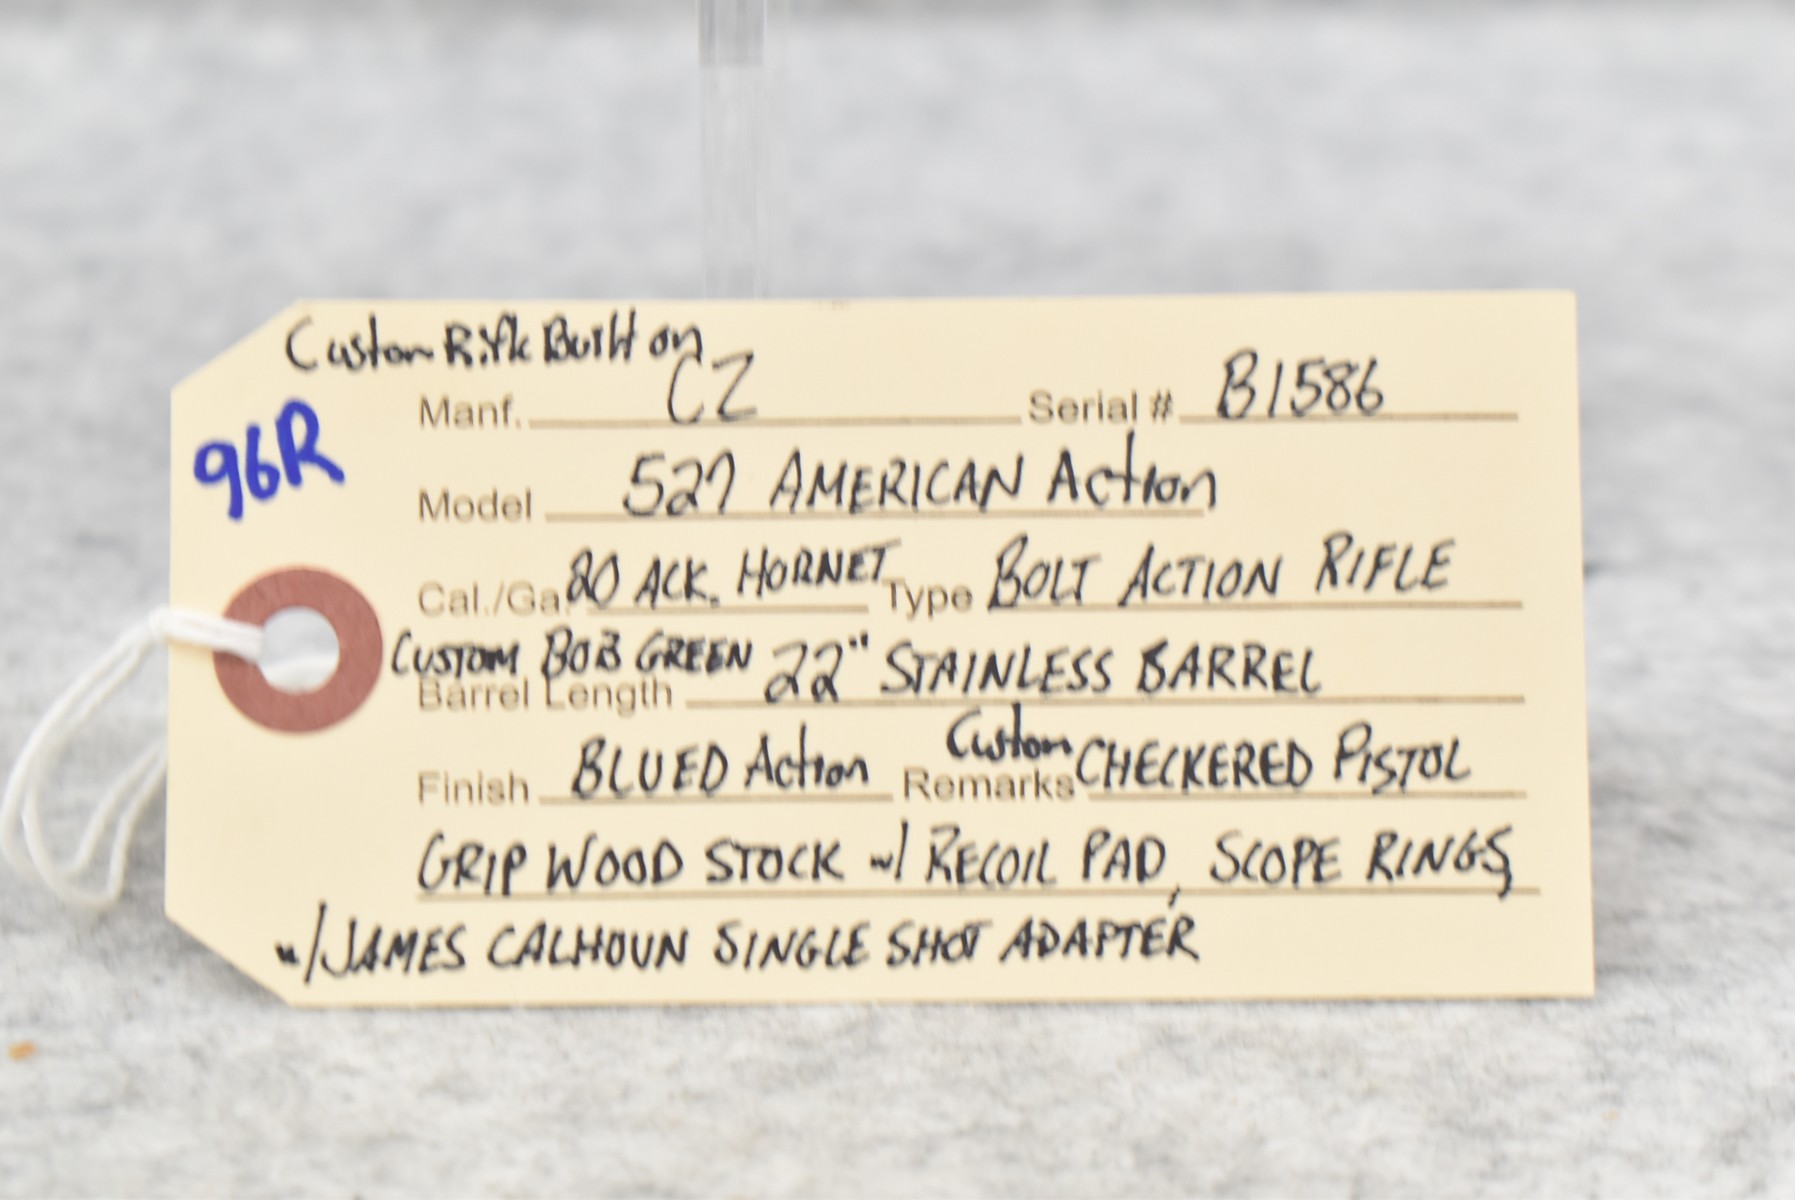 Custom Rifle Built on
Manf. CZ Serial # B1586
96R
Model 527 AMERICAN Action
Cal./Ga. 20 ACK. HORNET Type BOLT ACTION RIFLE
CUSTOM BOB GREEN
Barrel Length 22" STAINLESS BARREL
Finish BLUED Action Remarks Custom CHECKERED PISTOL
GRIP WOOD STOCK w/ RECOIL PAD, SCOPE RINGS,
w/ JAMES CALHOUN SINGLE SHOT ADAPTER